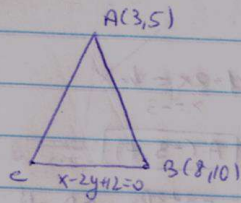 A(3,5)
C
x-2y+12=0
B(8,10)